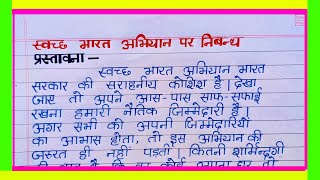 स्वच्छ भारत अभियान पर निबन्ध
प्रस्तावना —
स्वच्छ भारत अभियान भारत
सरकार की सराहनीय कोशिश है। देखा
जाए तो अपने आस-पास साफ-सफाई
रखना हमारी नैतिक जिम्मेदारी है।
अगर सभी को अपनी जिम्मेदारियों
का आभास होता, तो इस अभियान की
जरुरत ही नहीं पड़ती। कितनी शर्मिन्दगी